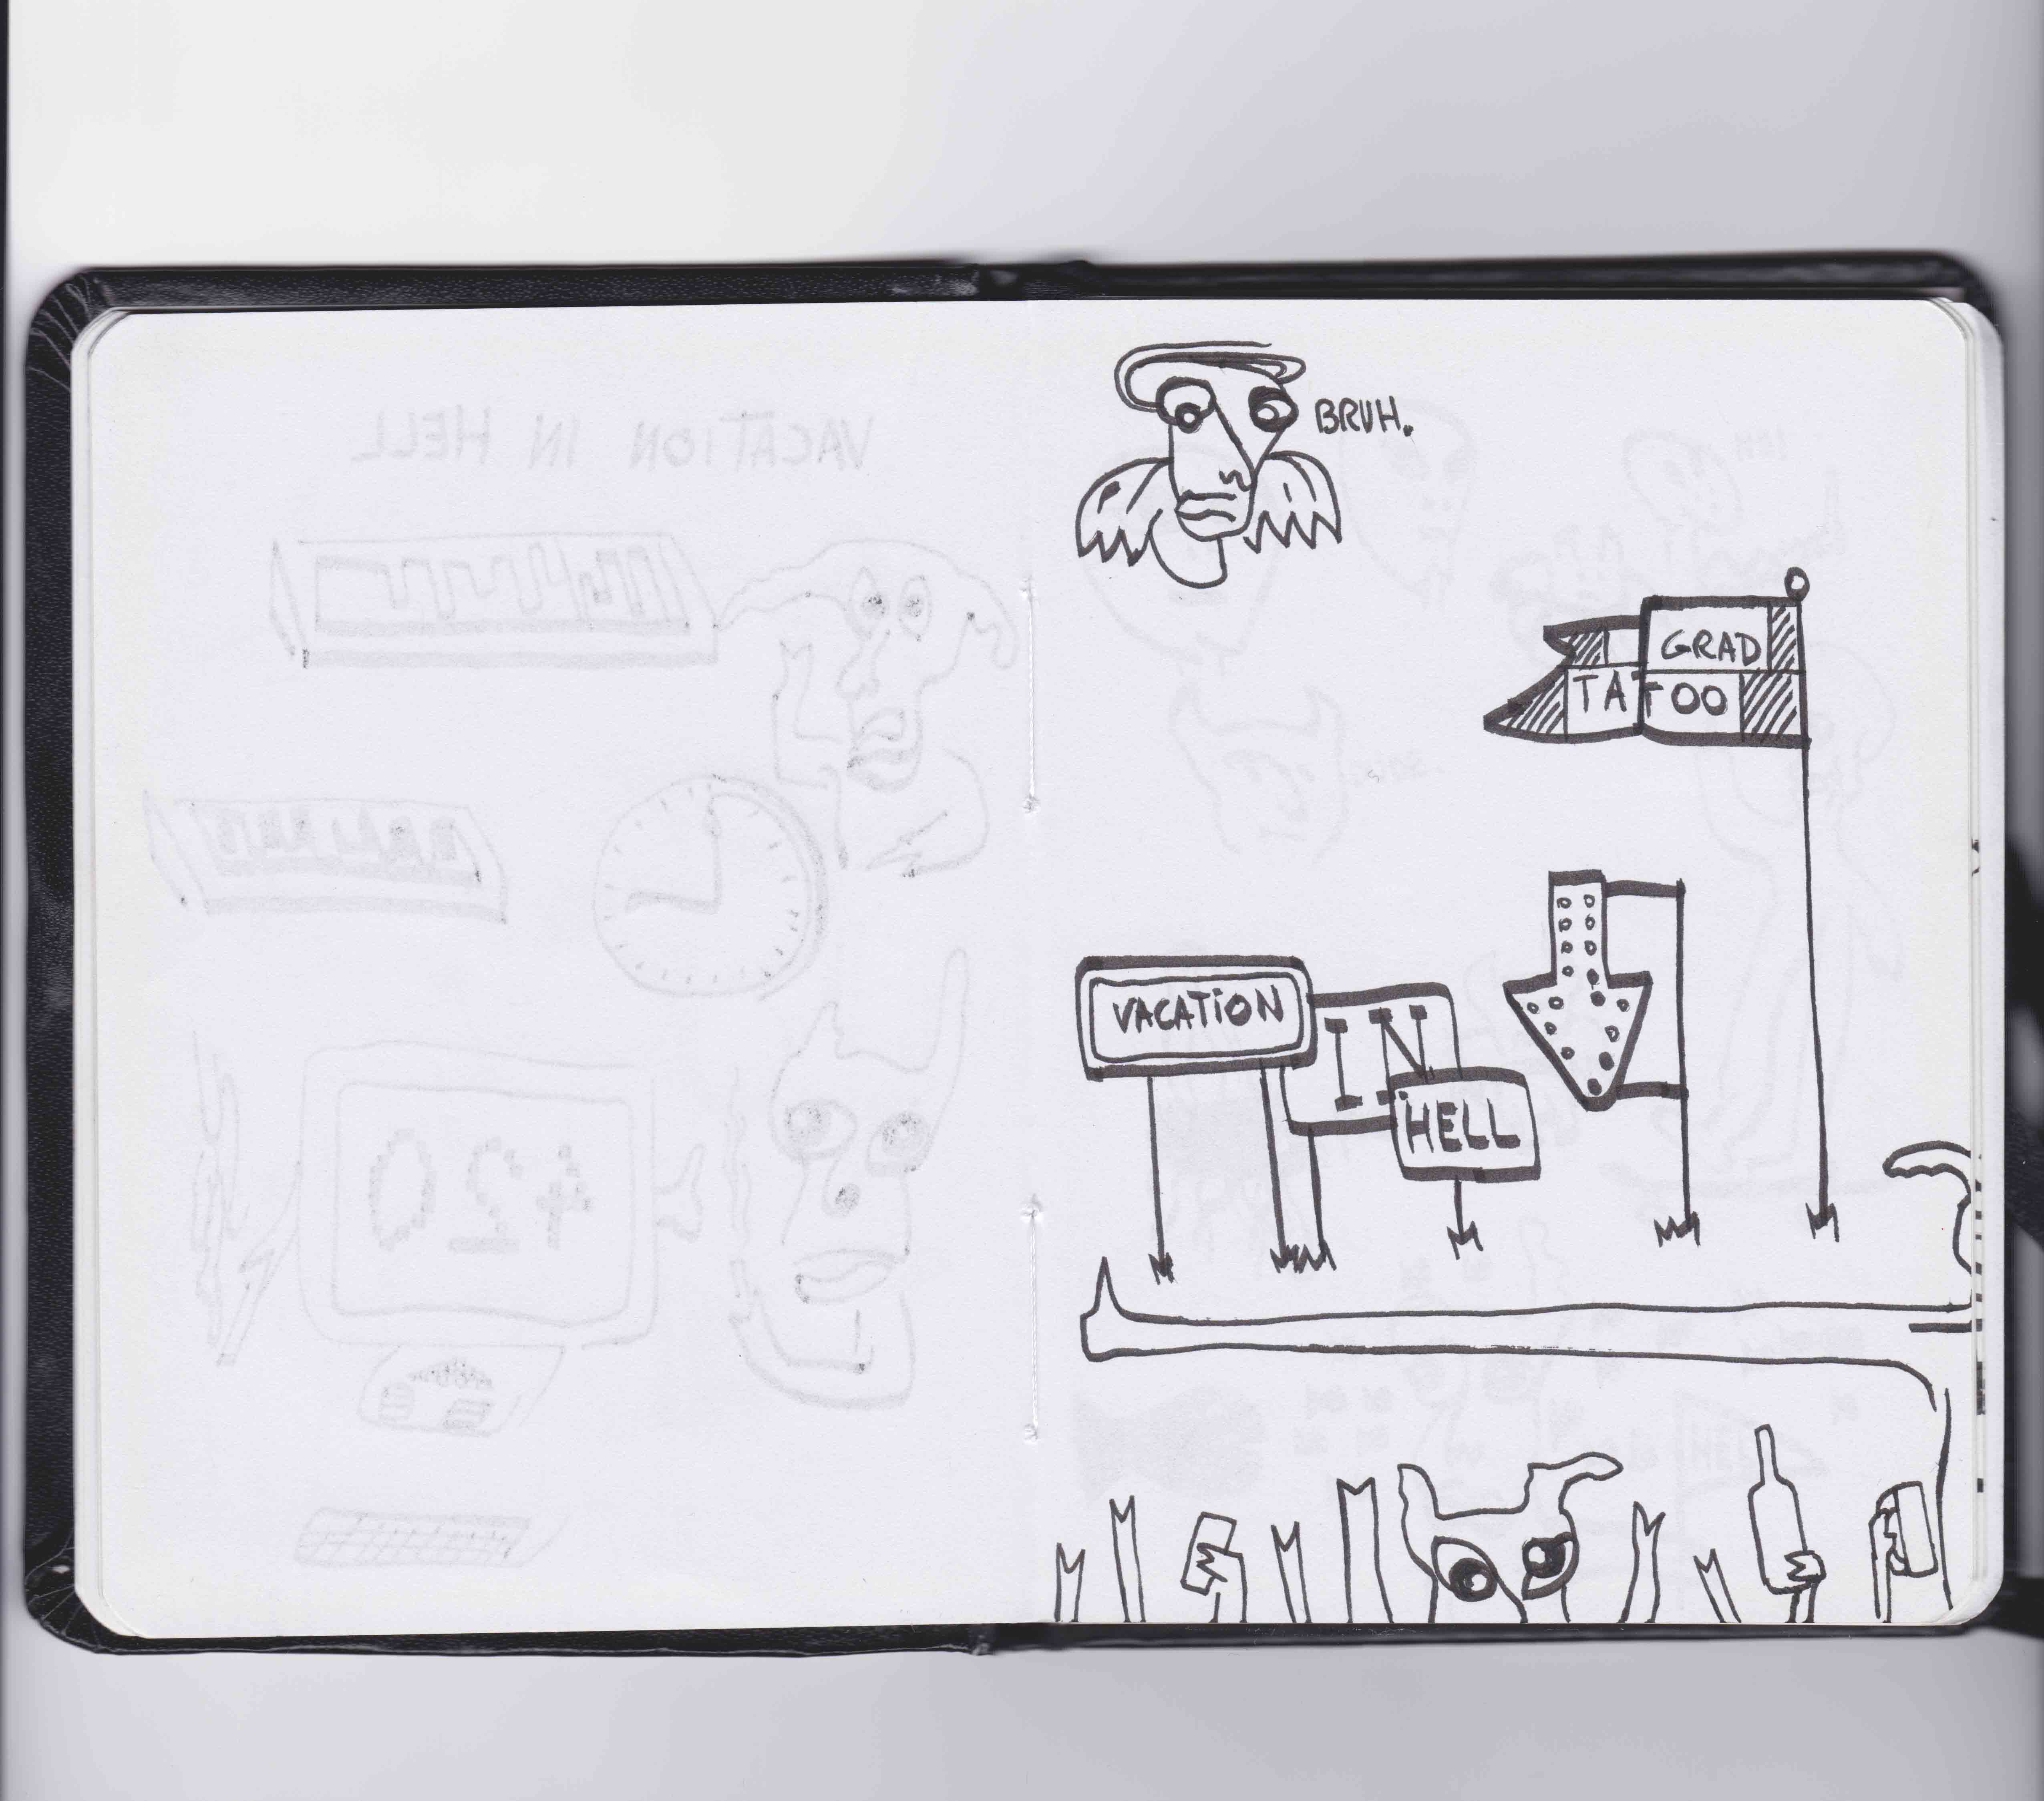 VACATION IN HELL
420
BRUH.
GRAD
TATOO
VACATION
IN
HELL